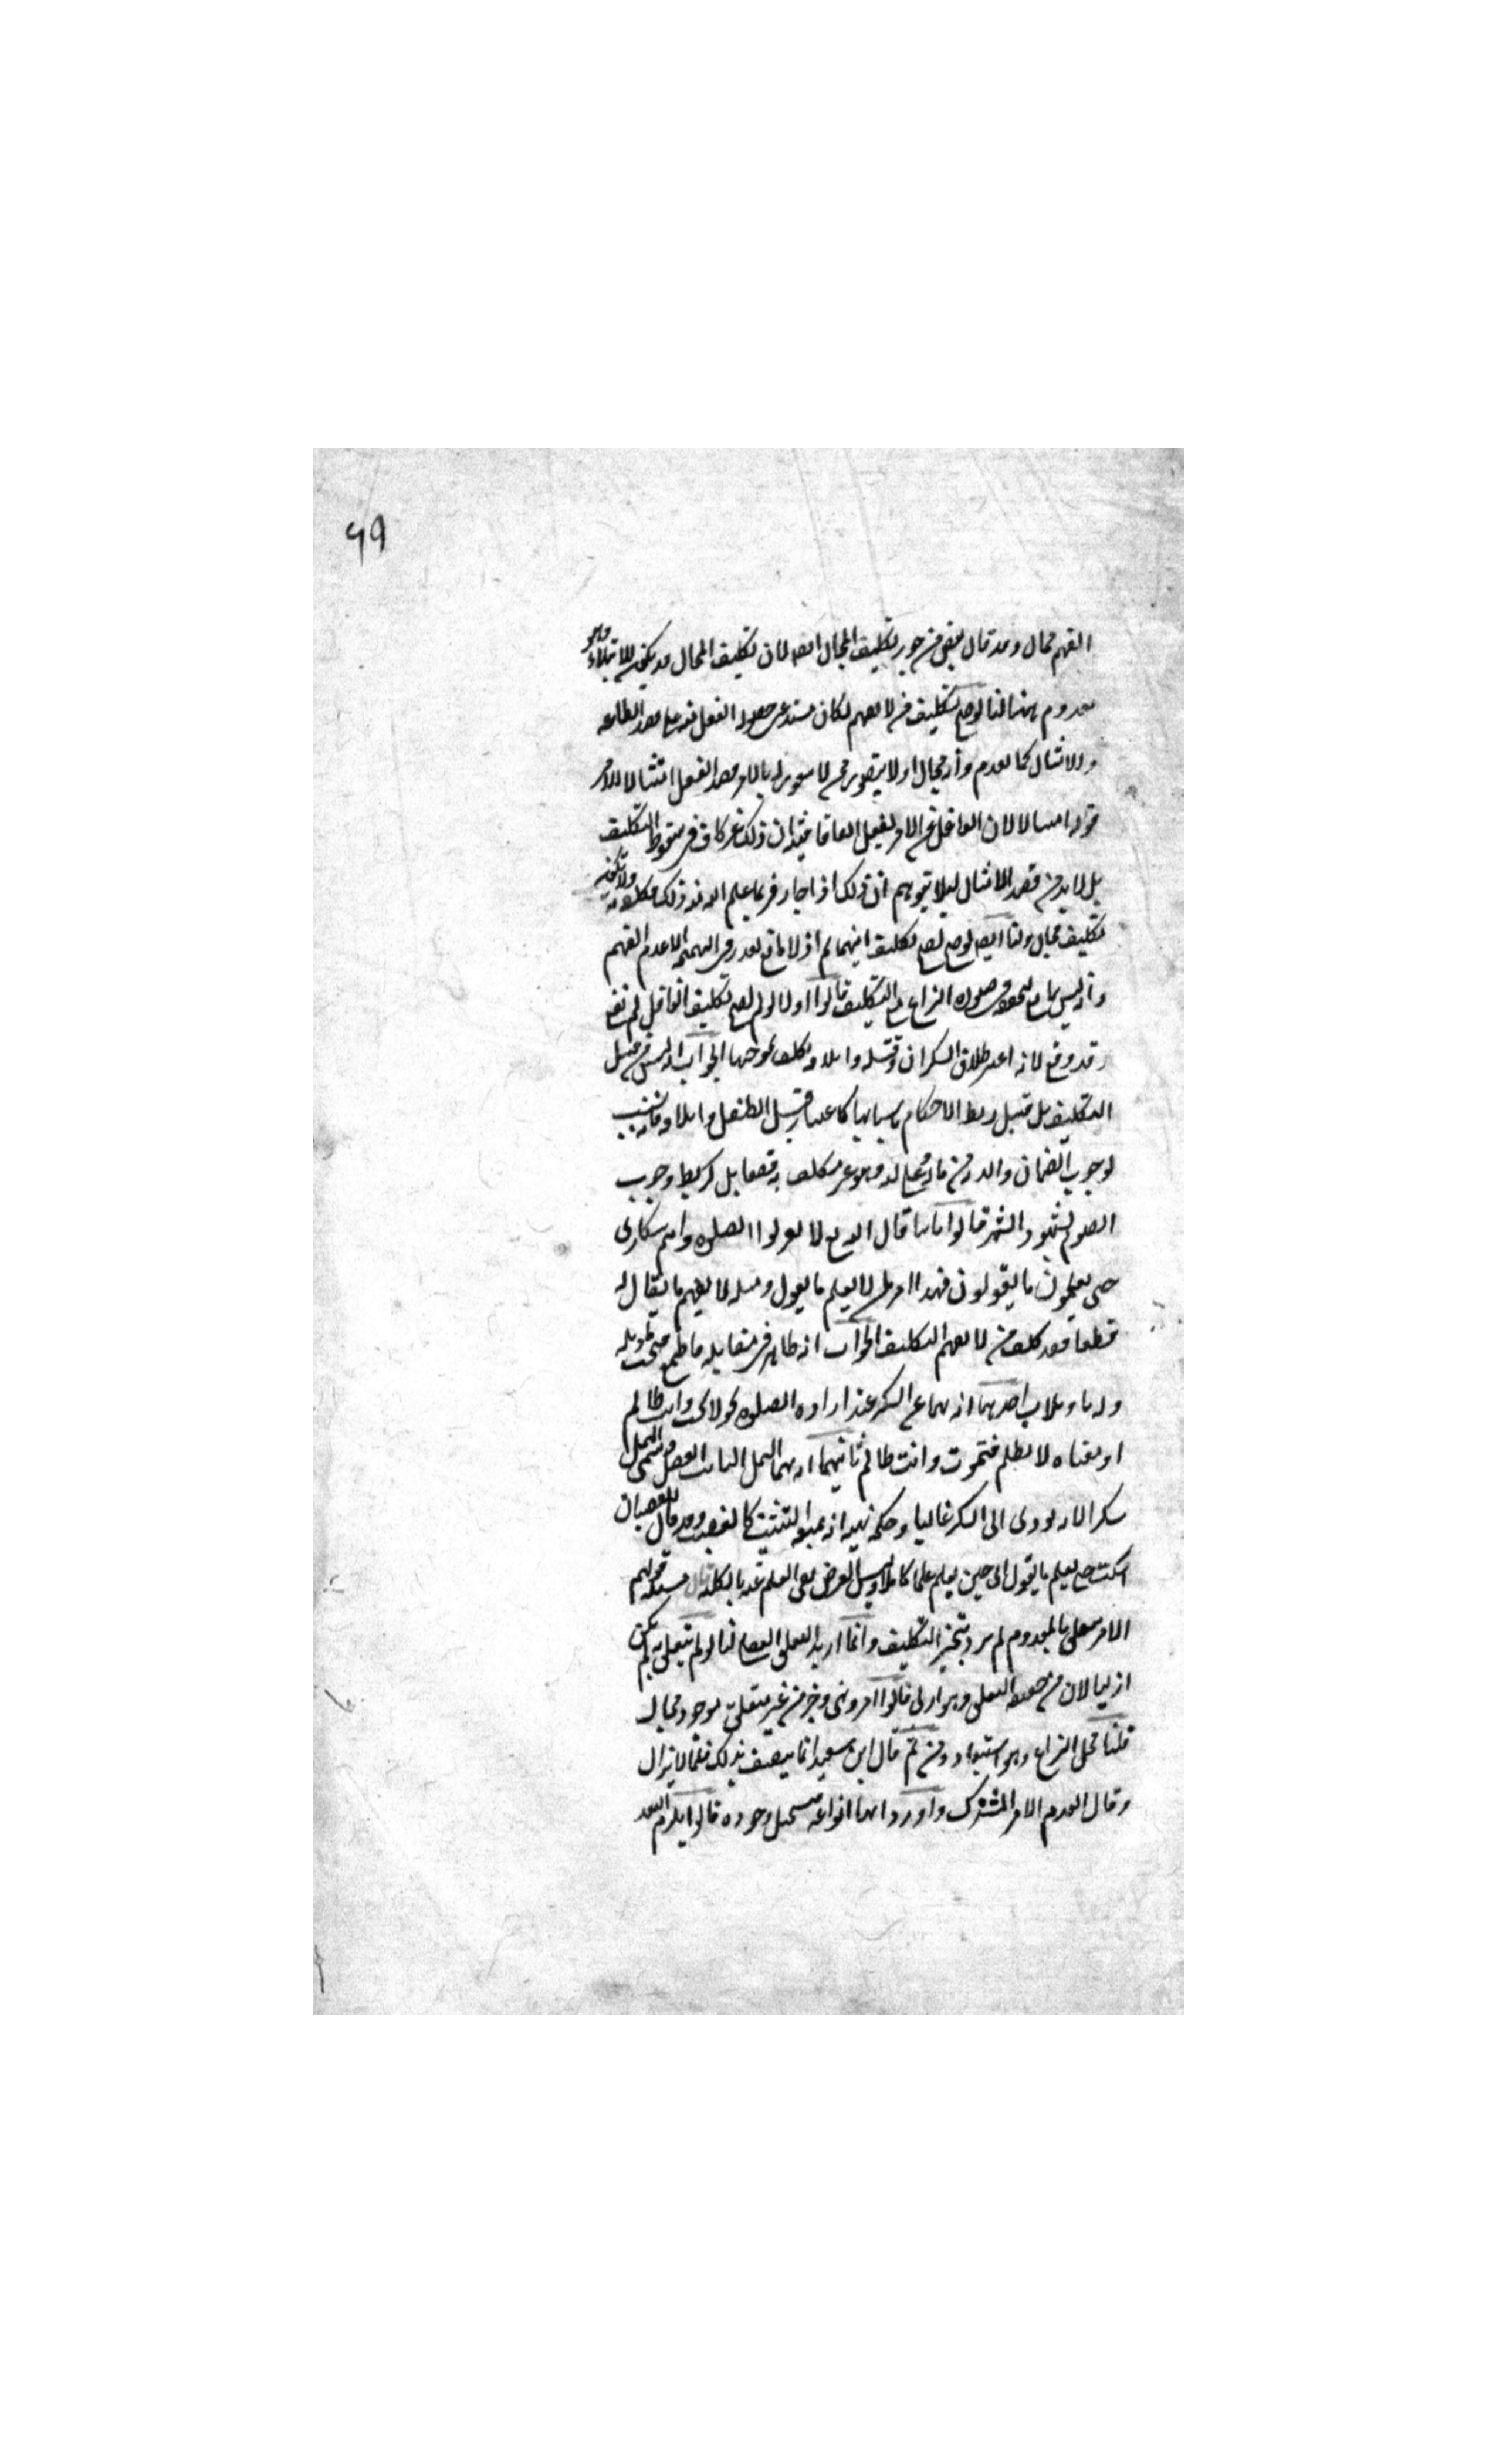 ٦٩
الفهم محال وقد قال بعض من جوز تكليف المحال ايضا لان تكليف المحال قد يكون للابتلاء وهو
معدوم ههنا لنا لو صح تكليف من لا يفهم لكان مستدعى حصول الفعل منه على قصد الطاعة
والامتثال كما تقدم وأنه محال اذ لا يتصور ممن لا شعور له بالامر قصد الفعل امتثالا للامر
قوله امتثالا لان الغافل عن الامر بالفعل اتفاقا فنبه ان ذلك غير كاف في سقوط التكليف
بل لا بد من قصد الامتثال لئلا يتوهم ان ذلك اذا جاز فربما علم الله منه ذلك فكلفه به ولا يكون
تكليف محال ولنا ايضا لو صح لصح تكليف البهائم اذ لا مانع يقدر في البهيمة الا عدم الفهم
وأنه ليس بمانع لتحققه في صورة النزاع مع التكليف قالوا اولا لو لم يصح تكليف الغافل لم يقع
وقد وقع لانه اعتبر طلاق السكران وقتله واتلافه وكلف بموجبها الجواب انه ليس من قبيل
التكليف بل من قبيل ربط الاحكام باسبابها كاعتبار قتل الطفل واتلافه فانه سبب
لوجوب الضمان والدية من ماله على وليه وهو غير مكلف به قطعا بل كربط وجوب
الصوم بشهود الشهر قالوا ثانيا قال الله تع لا تقربوا الصلوة وانتم سكارى
حتى تعلموا ما تقولون فهذا امر لمن لا يعلم ما يقول ومثله لا يفهم ما يقال له
قطعا فقد كلف من لا يفهم التكليف الجواب انه ظاهر في مقابلة قاطع فيجب تاويله
وله تاويلان احدهما انه نهى عن السكر عند ارادة الصلوة نحو لا تمت وانت ظالم
او معناه لا تظلم فتموت وانت ظالم ثانيهما انه نهى الثمل الثابت العقل وسمي الثمل
سكرا لانه يؤدى الى السكر غالبا وحكمة نهيه انه يمنعه التثبت كالغضب وقد يقال للغضبان
اسكت حتى تعلم ما تقول اى حين تعلم علما كاملا وليس الغرض نفى العلم عنه بالكلية قال مسئلة قولهم
الامر يتعلق بالمعدوم لم يرد تنجيز التكليف وانما اريد التعلق العقلى لنا لو لم يتعلق به لم يكن
ازليا لان من حقيقته التعلق وهو ازلى قالوا امر ونهى وخبر من غير متعلق موجود محال
قلنا محل النزاع وهو استبعاد ومن ثم قال ابن سعيد انما يتصف بذلك فيما لا يزال
وقال القديم الامر المشترك واورد انها انواعه فيستحيل وجوده قالوا يلزم التعدد